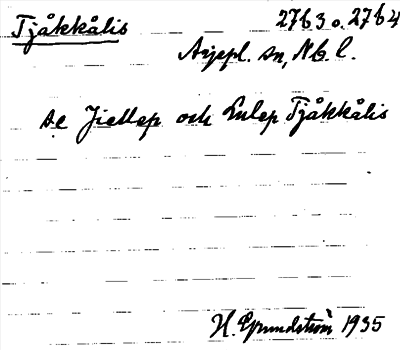 Tjåkkålis 2763 o. 2764
Arjepl. sn, Nb. l.
se Jiettep och Lulep Tjåkkålis
H. Grundström 1935